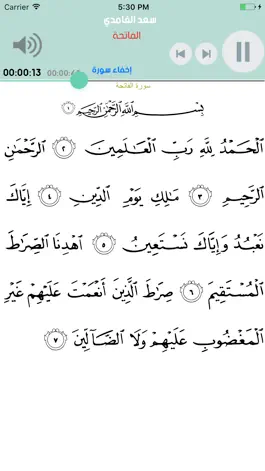 Carrier 5:30 PM
سعد الغامدي
الفاتحة
00:00:13
إخفاء سورة
سورة الفاتحة
بِسْمِ ٱللَّهِ ٱلرَّحْمَٰنِ ٱلرَّحِيمِ ١
ٱلْحَمْدُ لِلَّهِ رَبِّ ٱلْعَٰلَمِينَ ٢ ٱلرَّحْمَٰنِ
ٱلرَّحِيمِ ٣ مَٰلِكِ يَوْمِ ٱلدِّينِ ٤ إِيَّاكَ
نَعْبُدُ وَإِيَّاكَ نَسْتَعِينُ ٥ ٱهْدِنَا ٱلصِّرَٰطَ
ٱلْمُسْتَقِيمَ ٦ صِرَٰطَ ٱلَّذِينَ أَنْعَمْتَ عَلَيْهِمْ غَيْرِ
ٱلْمَغْضُوبِ عَلَيْهِمْ وَلَا ٱلضَّآلِّينَ ٧